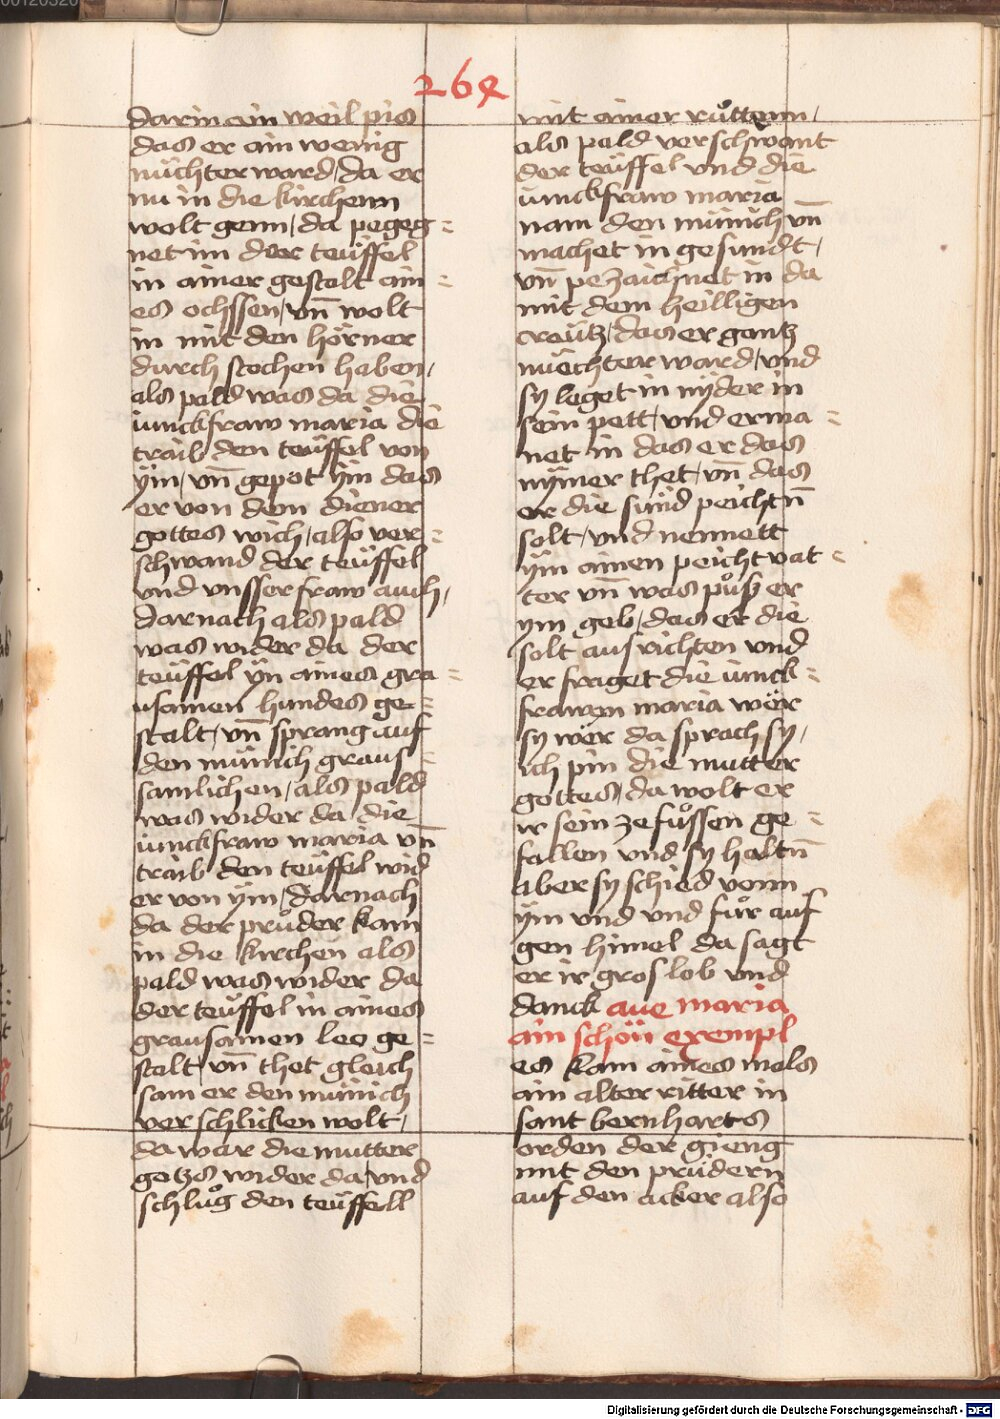 264
darin ain weil pis
das er ain wenig
nüchter ward / da er
nu in die kirchenn
wolt genn / da pegeg=
net im der teüffel
in ainer gestalt ain=
es ochssen / vn̄ wolt
in mit den hörner
durch stochen haben /
als pald was da die
iunckfraw maria die
traib den teüffel von
ÿm / vn̄ gepot ÿm das
er von dem diener
gottes wich / also ver=
schwand der teüffel
vnd vnsser fraw auch /
darnach als pald
was wider da der
teüffel ÿn aines gra=
usamen hundes ge=
stalt / vn̄ sprang auf
den münich graus=
samlichen / als pald
was wider da die
iunckfraw maria vn̄
traib den teüffel wid
er von ÿm / darnach
da der průder kam
in die kirchen als
pald was wider da
der teüffel in aines
grausamen leo ge=
stalt vn̄ thet gleich
sam er den münich
verschlicken wolt /
da war die mutter
gotzs wider da / vnd
schlůg den teüffell
mit ainer růttenn /
als pald verschwant
der teüffel vnd die
iunckfraw maria
nam den münich vn̄
machet in gesundt /
vn̄ pezaichnet in da
mit dem heilligen
creütz / das er gantz
nüechter ward / vnd
sy leget in nÿder in
sein pett / vnd erma=
net in das er das
nÿmer thet / vn̄ das
er die sünd peichtn̄
solt / vnd nennett
ÿm ainen peicht vat=
ter vn̄ was půß er
ym geb / das er die
solt aus richten vnd
er fraget die iunck=
frawen maria wer
sy wer da sprach sy /
ich pin die mutter
gottes / da wolt er
ir sein ze fůssen ge=
fallen vnd sy haltn̄
aber sy schied vonn
ÿm vnd vnd fůr auf
gen himel da sagt
er ir gros lob vnd
danck aue maria
ain schön exempl
es kam aines mals
ain alter ritter in
sant bernharts
orden der gieng
mit den prüdern
auf den acker also
Digitalisierung gefördert durch die Deutsche Forschungsgemeinschaft - DFG